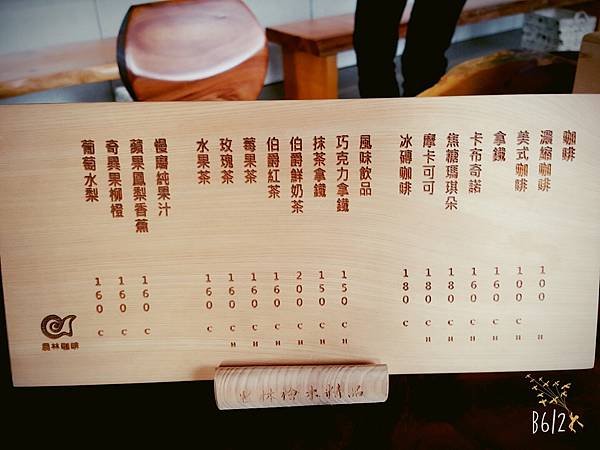 咖啡
濃縮咖啡 100 H
美式咖啡 100 C H
拿鐵 160 C H
卡布奇諾 160 C H
焦糖瑪琪朵 180 C H
摩卡可可 180 C H
冰磚咖啡 180 C
風味飲品
巧克力拿鐵 150 C H
抹茶拿鐵 150 C H
伯爵鮮奶茶 200 C H
伯爵紅茶 160 C H
莓果茶 160 C H
玫瑰茶 160 C H
水果茶 160 C
慢磨純果汁
蘋果鳳梨香蕉 160 C
奇異果柳橙 160 C
葡萄水梨 160 C
農林咖啡
B612